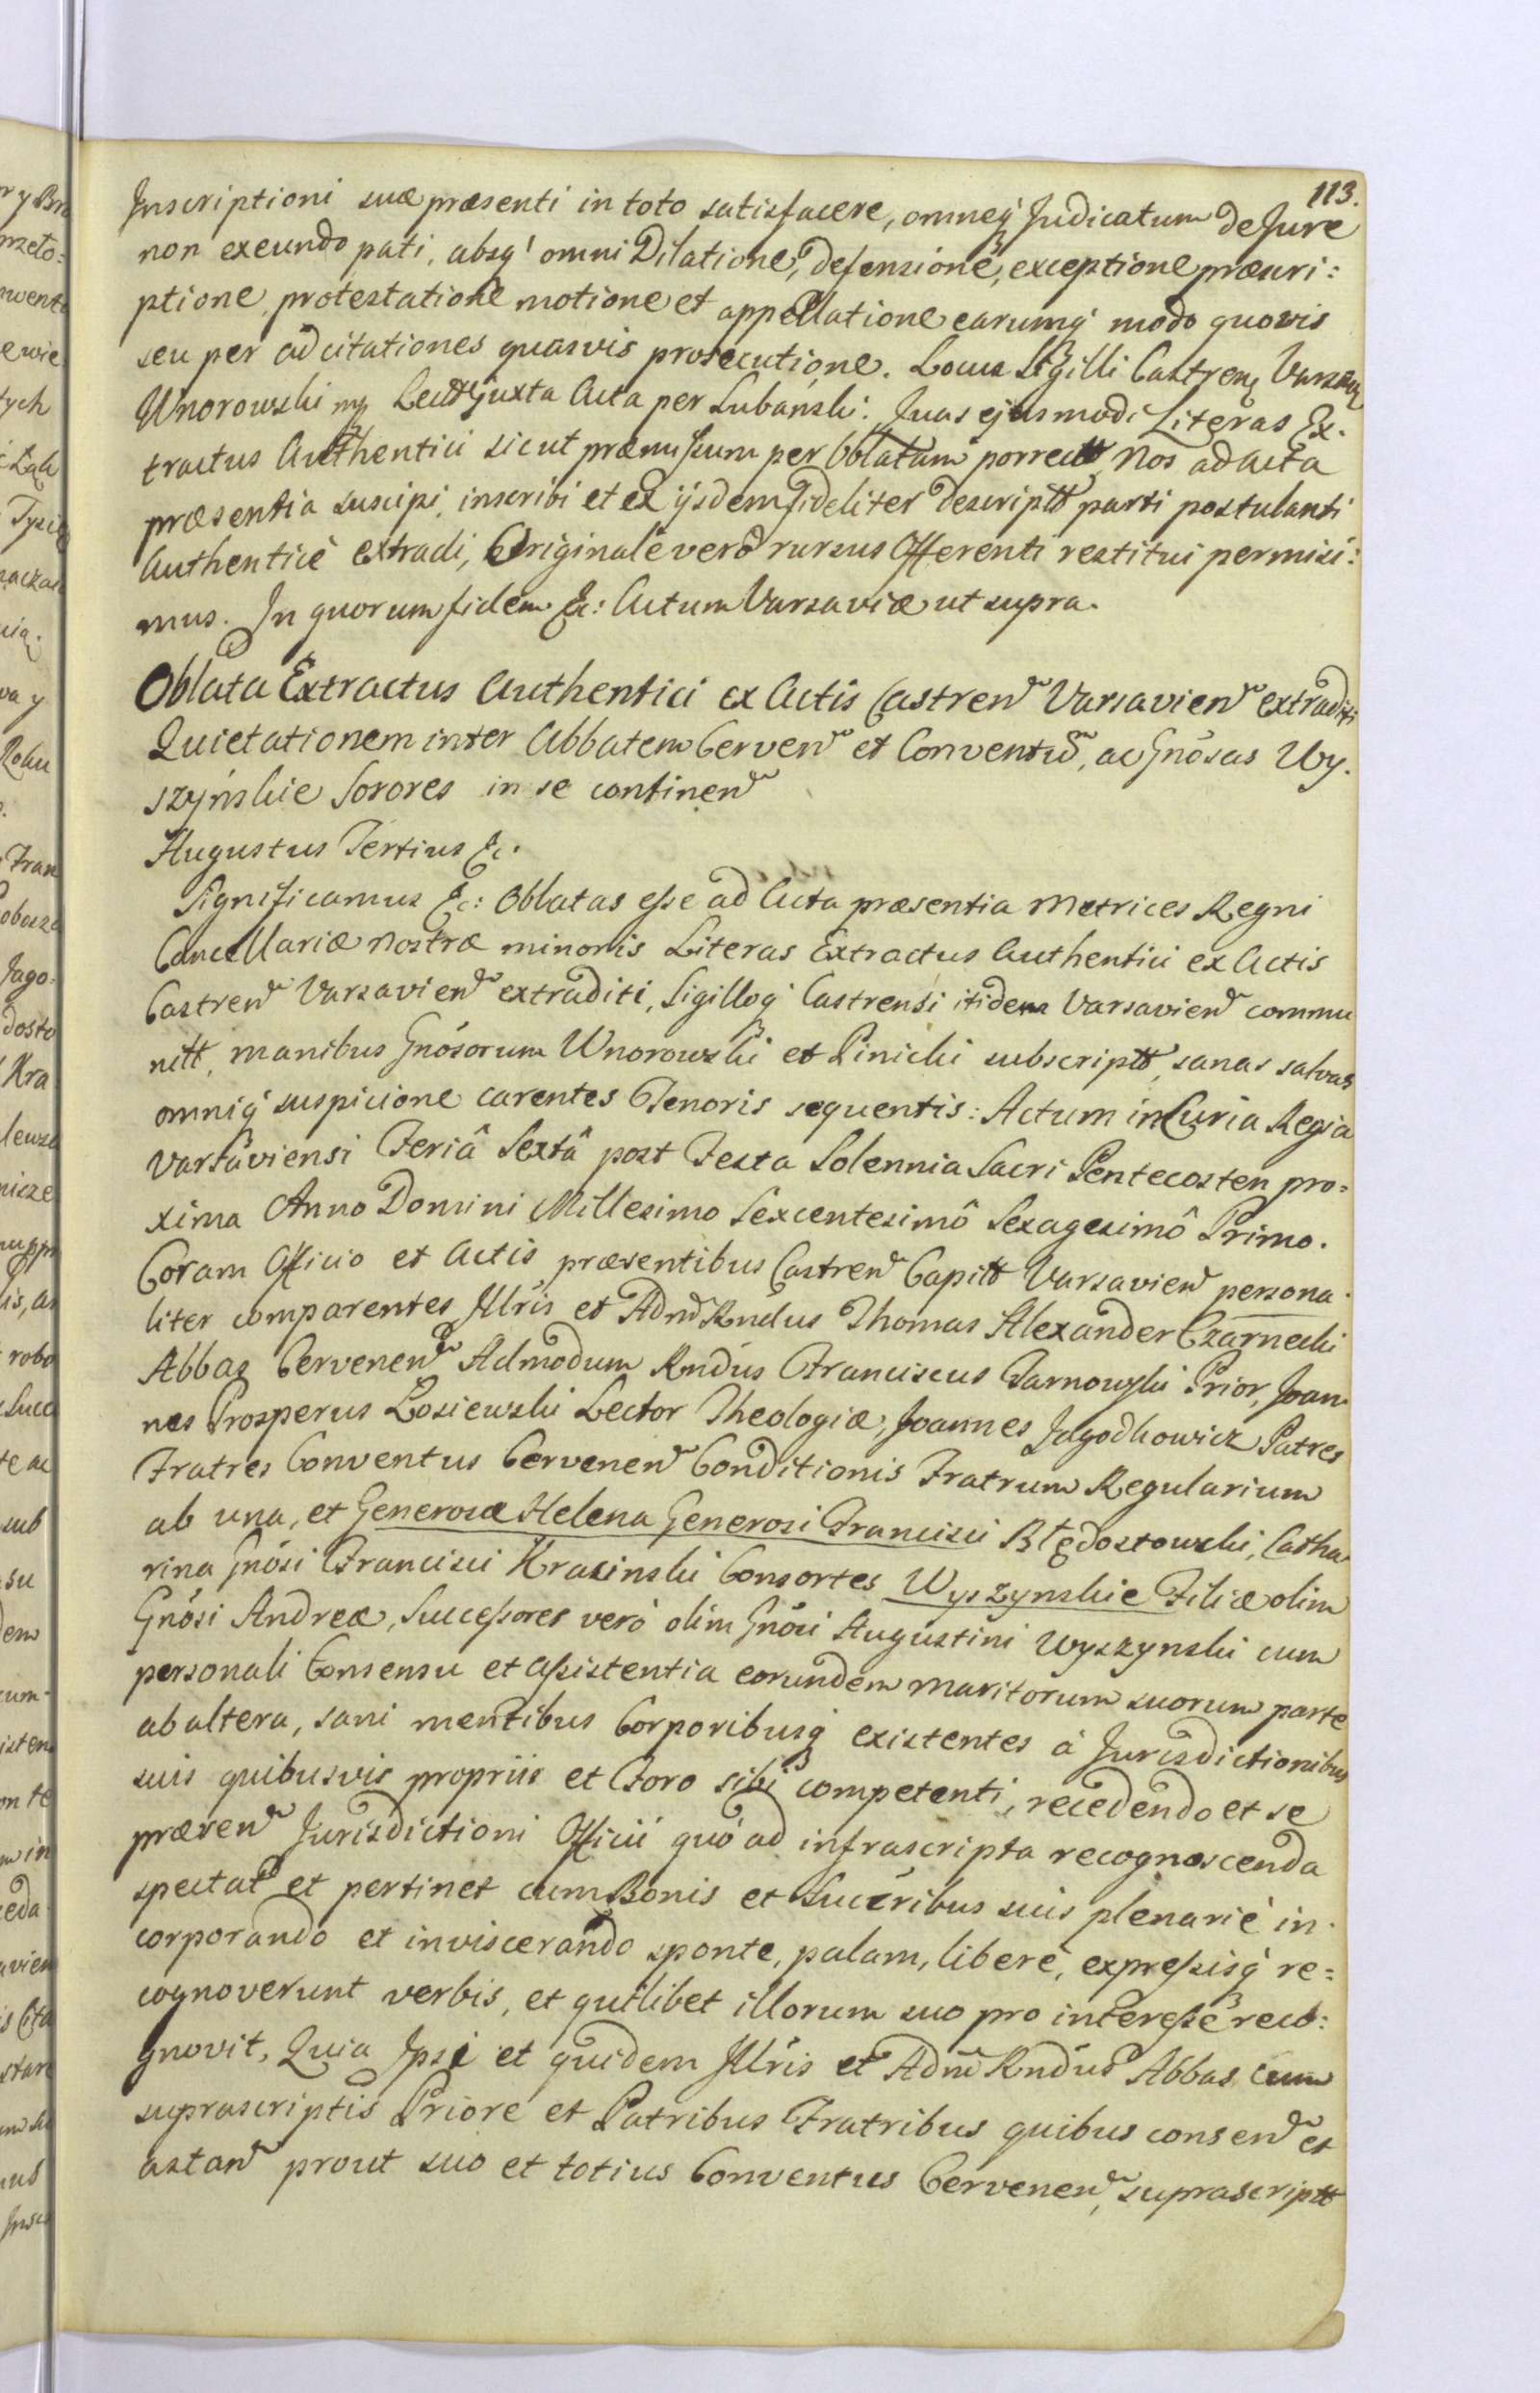 113.
Inscriptioni suæ præsenti in toto satisfacere, omneq́ Judicatum de Jure
non exeundo pati, absq́ omni Dilatione, defensione, exceptione præscri:
ptione, protestatione motione et appellatione earumq́ modo quovis
seu per adcitationes quasvis prosecutione. Locus Sigilli Castren Varsav
Wnorowski mp Lectt juxta Acta per Lubański. Quas ejusmodi Literas Ex.
tractus Authentici sicut præmissum per Oblatam porrectt, Nos ad acta
præsentia suscipi, inscribi et ex ijsdem fideliter descriptt parti postulanti
Authenticè extradi, Originale verò rursus Offerenti restitui permisi:
mus. In quorum fidem &c: Actum Varsaviæ ut supra.
Oblata Extractus Authentici ex Actis Castren Varsavien extraditi
Quietationem inter Abbatem Cerven et Conventum, ac Gnosas Wy.
szyńskie Sorores in se continen
Augustus Tertius &c.
Significamus &c: Oblatas esse ad Acta præsentia Metrices Regni
Cancellariæ Nostræ minoris Literas Extractus Authentici ex Actis
Castren Varsavien extraditi, Sigilloq́ Castrensi itidem Varsavien commu
nitt, manibus Gnósorum Wnorowski et Pinicki subscriptt, sanas salvas
omniq́ suspicione carentes Tenoris sequentis: Actum in Curia Regia
Varsaviensi Feriâ Sextâ post Festa Solennia Sacri Pentecosten pro=
xima Anno Domini Millesimo Sexcentesimô Sexagesimô Primo.
Coram Officio et Actis præsentibus Castren Capitt Varsavien persona
liter comparentes Illris et Adm Rndus Thomas Alexander Czarnecki
Abbas Cervenen Admodum Rndus Franciscus Tarnowski Prior, Joan
nes Prosperus Łosiewski Lector Theologiæ, Joannes Jagodkowicz Patres
Fratres Conventus Cervenen Conditionis Fratrum Regularium
ab una, et Generosæ Helena Generosi Francisci Błędostowski, Catha
rina Gnósi Francisci Krasinski Consortes Wyszynskie Filiæ olim
Gnósi Andreæ, Successores verò olim Gnósi Augustini Wyszynski cum
personali Consensu et assistentia eorundem maritorum suorum parte
ab altera, sani mentibus Corporibusq́ existentes à Jurisdictionibus
suis quibusvis propriis et Foro sibi competenti, recedendo et se
præsen Jurisdictioni Officii quò ad infrascripta recognoscenda
spectat et pertinet cum Bonis et Succribus suis plenariè in.
corporando et inviscerando sponte, palam, liberè, expressisq́ re=
cognoverunt verbis, et quilibet illorum suo pro interesse reco:
gnovit, Quia Ipsi et quidem Illris et Adm Rndus Abbas cum
suprascriptis Priore et Patribus Fratribus quibus consen et
astan prout suo et totius Conventus Cervenen, suprascriptt